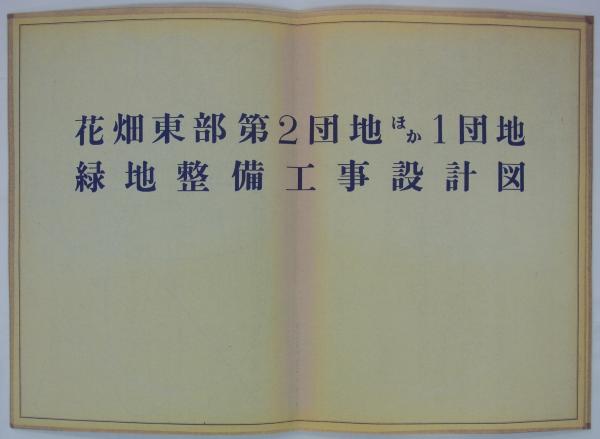 花畑東部第2団地ほか1団地
緑地整備工事設計図